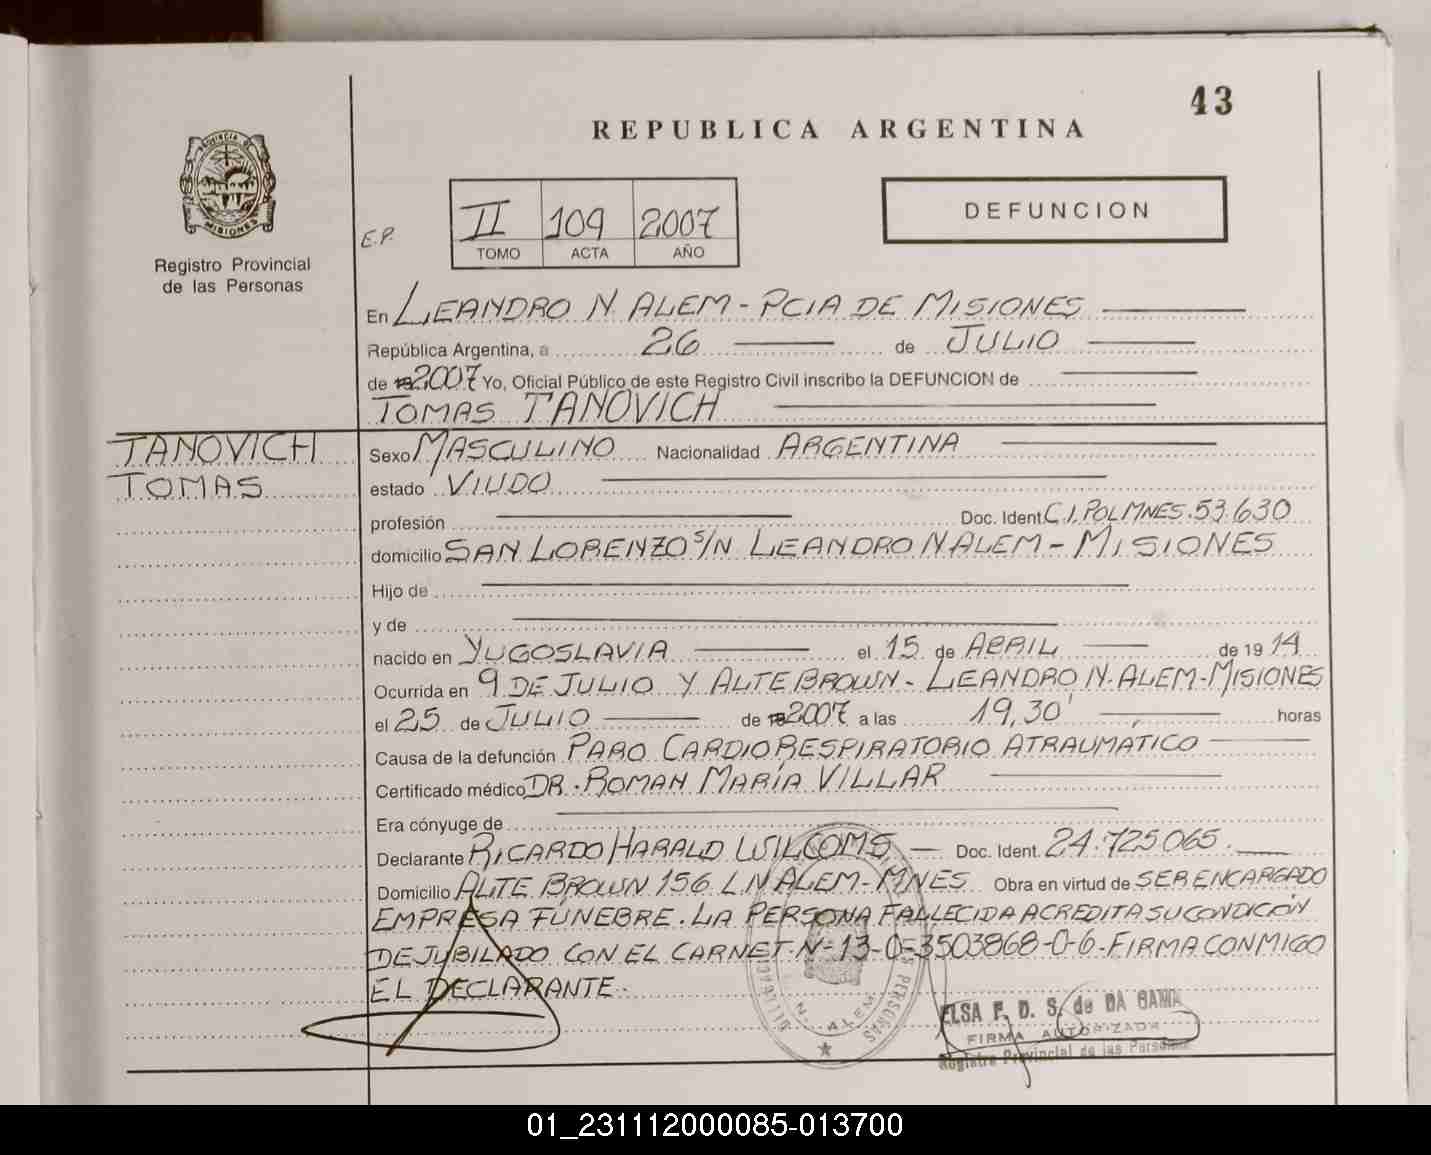 43
REPUBLICA ARGENTINA
PROVINCIA DE
MISIONES
Registro Provincial
de las Personas
E.P.
II 109 2007
TOMO ACTA AÑO
DEFUNCION
En LEANDRO N ALEM - PCIA DE MISIONES
República Argentina, a 26 de JULIO
de 2007 Yo, Oficial Público de este Registro Civil inscribo la DEFUNCION de
TOMAS TANOVICH
TANOVICH
TOMAS
Sexo MASCULINO Nacionalidad ARGENTINA
estado VIUDO
profesión Doc. Ident. C.I. POL MNES. 53.630
domicilio SAN LORENZO S/N LEANDRO N ALEM - MISIONES
Hijo de
y de
nacido en YUGOSLAVIA el 15 de ABRIL de 1914
Ocurrida en 9 DE JULIO Y ALTE BROWN - LEANDRO N. ALEM - MISIONES
el 25 de JULIO de 2007 a las 19,30' horas
Causa de la defunción PARO CARDIORESPIRATORIO ATRAUMATICO
Certificado médico DR. ROMAN MARÍA VILLAR
Era cónyuge de
Declarante RICARDO HARALD WILCOMS Doc. Ident. 24.725.065.
Domicilio ALTE BROWN 156 L N ALEM - MNES Obra en virtud de SER ENCARGADO
EMPRESA FÚNEBRE. LA PERSONA FALLECIDA ACREDITA SU CONDICIÓN
DE JUBILADO CON EL CARNET Nº 13-0-3503868-0-6. FIRMA CONMIGO
EL DECLARANTE.
N. ALEM
ELSA F. D. S. de DA GAMA
FIRMA AUTORIZADA
Registro Provincial de las Personas
01_231112000085-013700